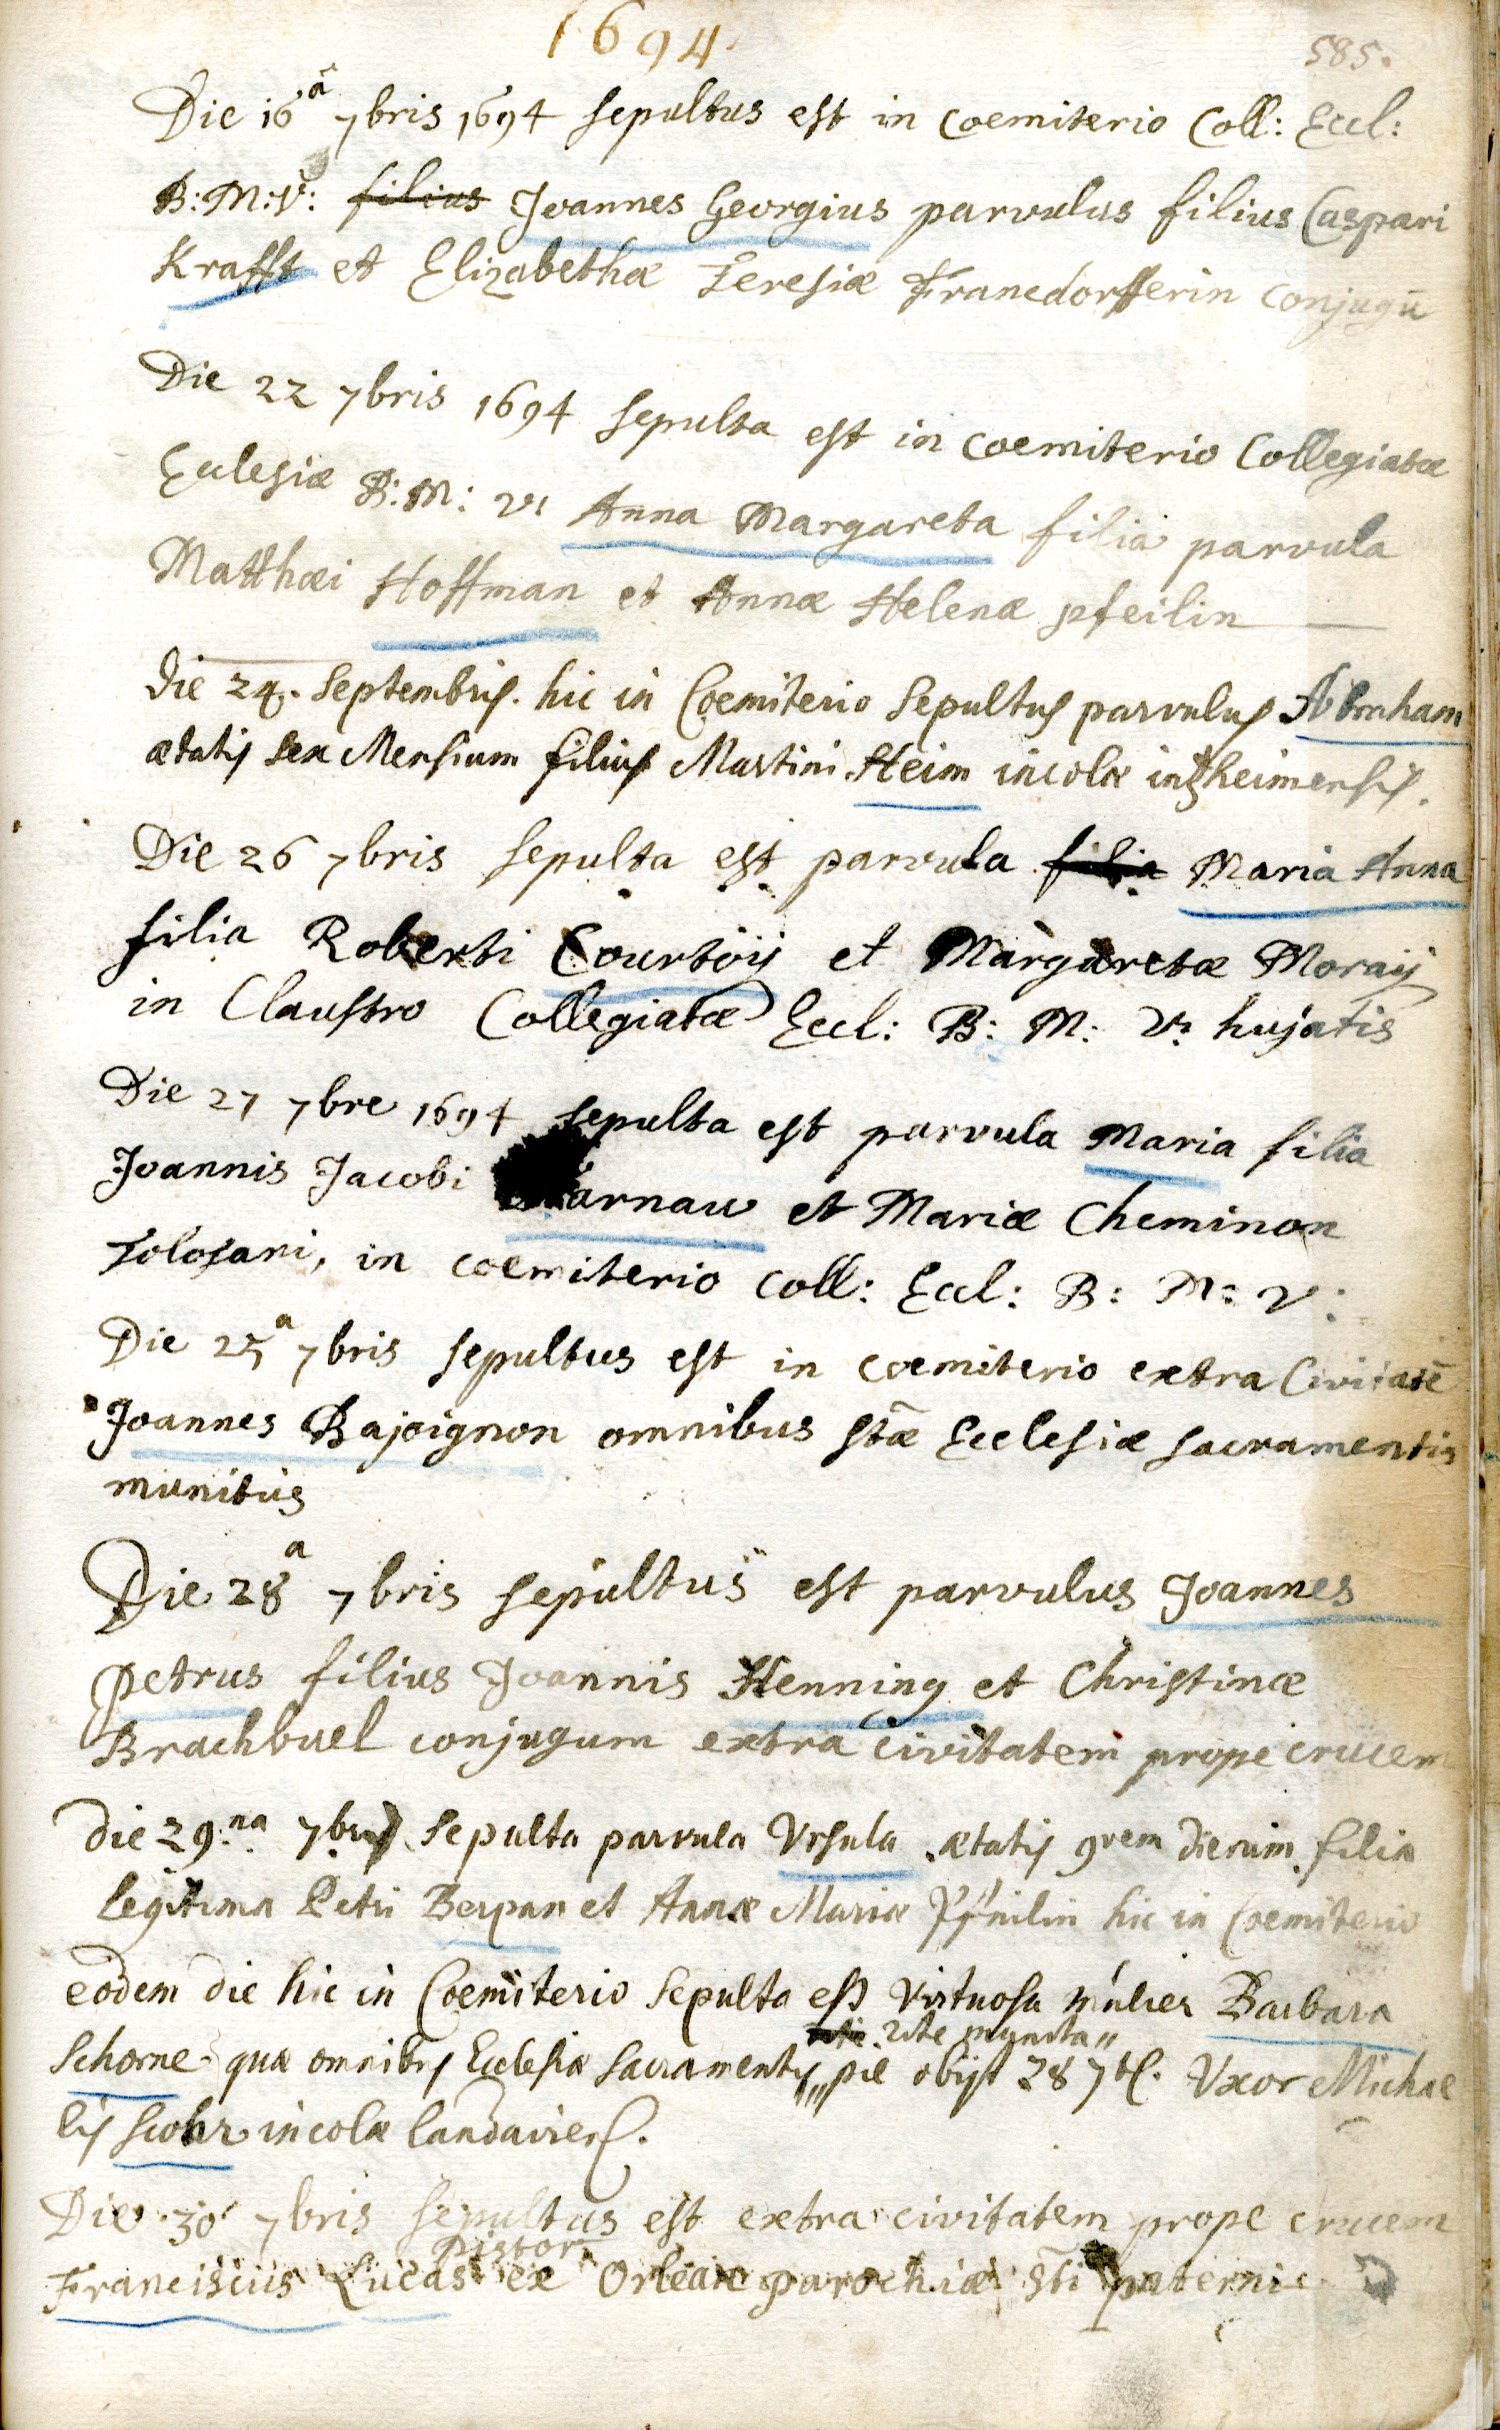 1694.
585.
Die 16ª 7bris 1694 sepultus est in coemiterio Coll: Eccl:
B:M:V: filius Joannes Georgius parvulus filius Caspari
Krafft et Elizabethæ Teresiæ Francdorfferin conjugū
Die 22 7bris 1694 sepulta est in coemiterio Collegiatæ
Eclesiæ B:M:V: Anna Margareta filia parvula
Matthæi Hoffman et Annæ Helenæ pfeilin
die 24. Septembris. hic in Coemiterio Sepultus parvulus Abraham
ætatis sex Mensium filius Martini Heim incolæ inßheimensis.
Die 26 7bris sepulta est parvula filia Maria Anna
filia Roberti Courtoÿ et Margaretæ Moraÿ
in Claustro Collegiatæ Eccl: B: M: V: hujatis
Die 27 7bre 1694 sepulta est parvula Maria filia
Joannis Jacobi arnau et Mariæ Cheminon
Tolosani, in coemiterio Coll: Eccl: B: M: V:
Die 25ª 7bris sepultus est in coemiterio extra Civitatē
Joannes Bajoignon omnibus stæ Ecclesiæ sacramentis
munitus
Die 28ª 7bris sepultus est parvulus Joannes
petrus filius Joannis Henning et Christinæ
Brachbuel conjugum extra civitatem prope crucem
die 29.na 7bris sepulta parvula Ursula ætatis 9vem dierum filia
legitima Petri Berpan et Annæ Mariæ hic in Coemiterio
eodem die hic in Coemiterio Sepulta est virtuosa mulier Barbara
rite munita
Schorne quæ omnibus Ecclesiæ Sacramentis pie obijt 28 7b. Uxor Michae
lis Scohr incolæ landaviens.
Die 30 7bris sepultus est extra civitatem prope crucem
pistor
Franciscus Lucas ex Orleane parochiæ sti paterni